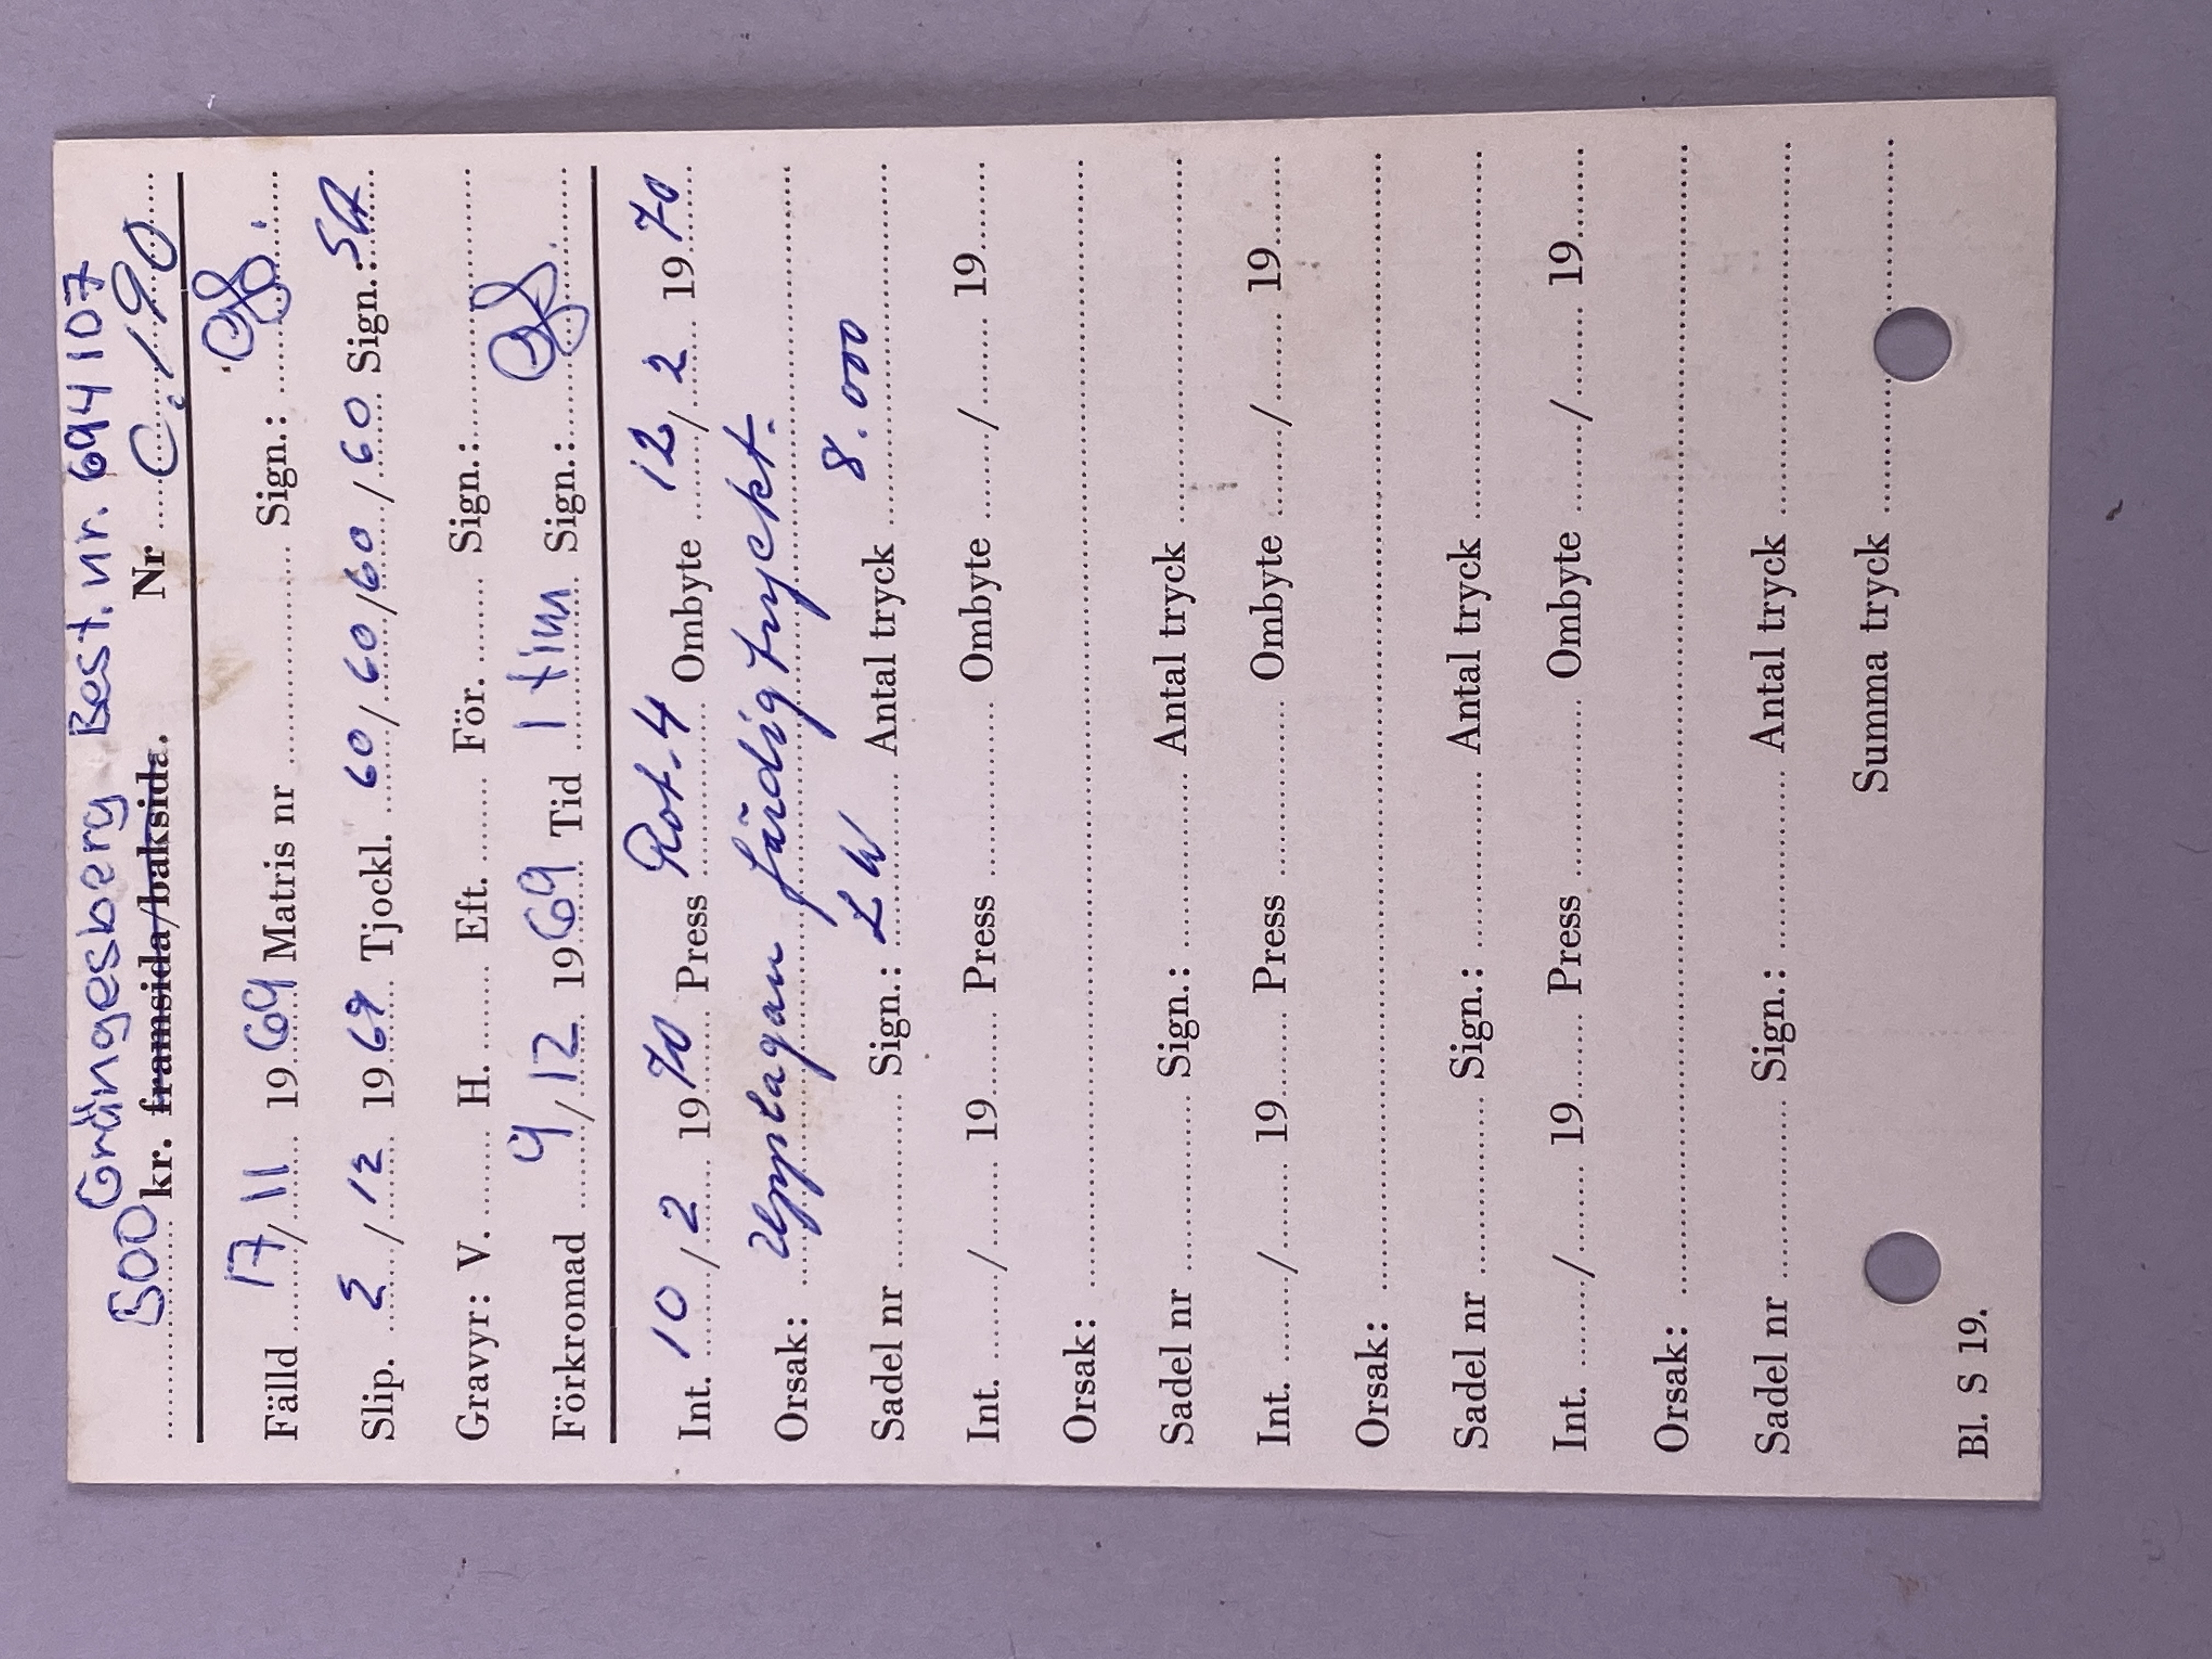 Grängesberg Best. nr. 694107
500 kr. framsida/baksida. Nr C. 190
Fälld 17/11 1969 Matris nr ........ Sign.:
Slip. 2/12 1969 Tjockl. 60/60/60/60 Sign.: SA
Gravyr: V. ........ H. ........ Eft. ........ För. ........ Sign.:
Förkromad 9/12 1969 Tid 1 tim Sign.:
Int. 10/2 1970 Press Rot. 4 Ombyte 12/2 1970
Orsak: Upplagan färdigtryckt.
Sadel nr ........ Sign.: LW Antal tryck 8.000
Int. ......../........ 19........ Press ........ Ombyte ......../........ 19........
Orsak: ........
Sadel nr ........ Sign.: ........ Antal tryck ........
Int. ......../........ 19........ Press ........ Ombyte ......../........ 19........
Orsak: ........
Sadel nr ........ Sign.: ........ Antal tryck ........
Int. ......../........ 19........ Press ........ Ombyte ......../........ 19........
Orsak: ........
Sadel nr ........ Sign.: ........ Antal tryck ........
Summa tryck ........
Bl. S 19.